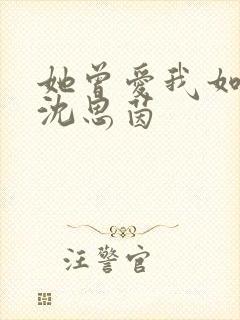 她曾愛我如
沈思茵
汪警官